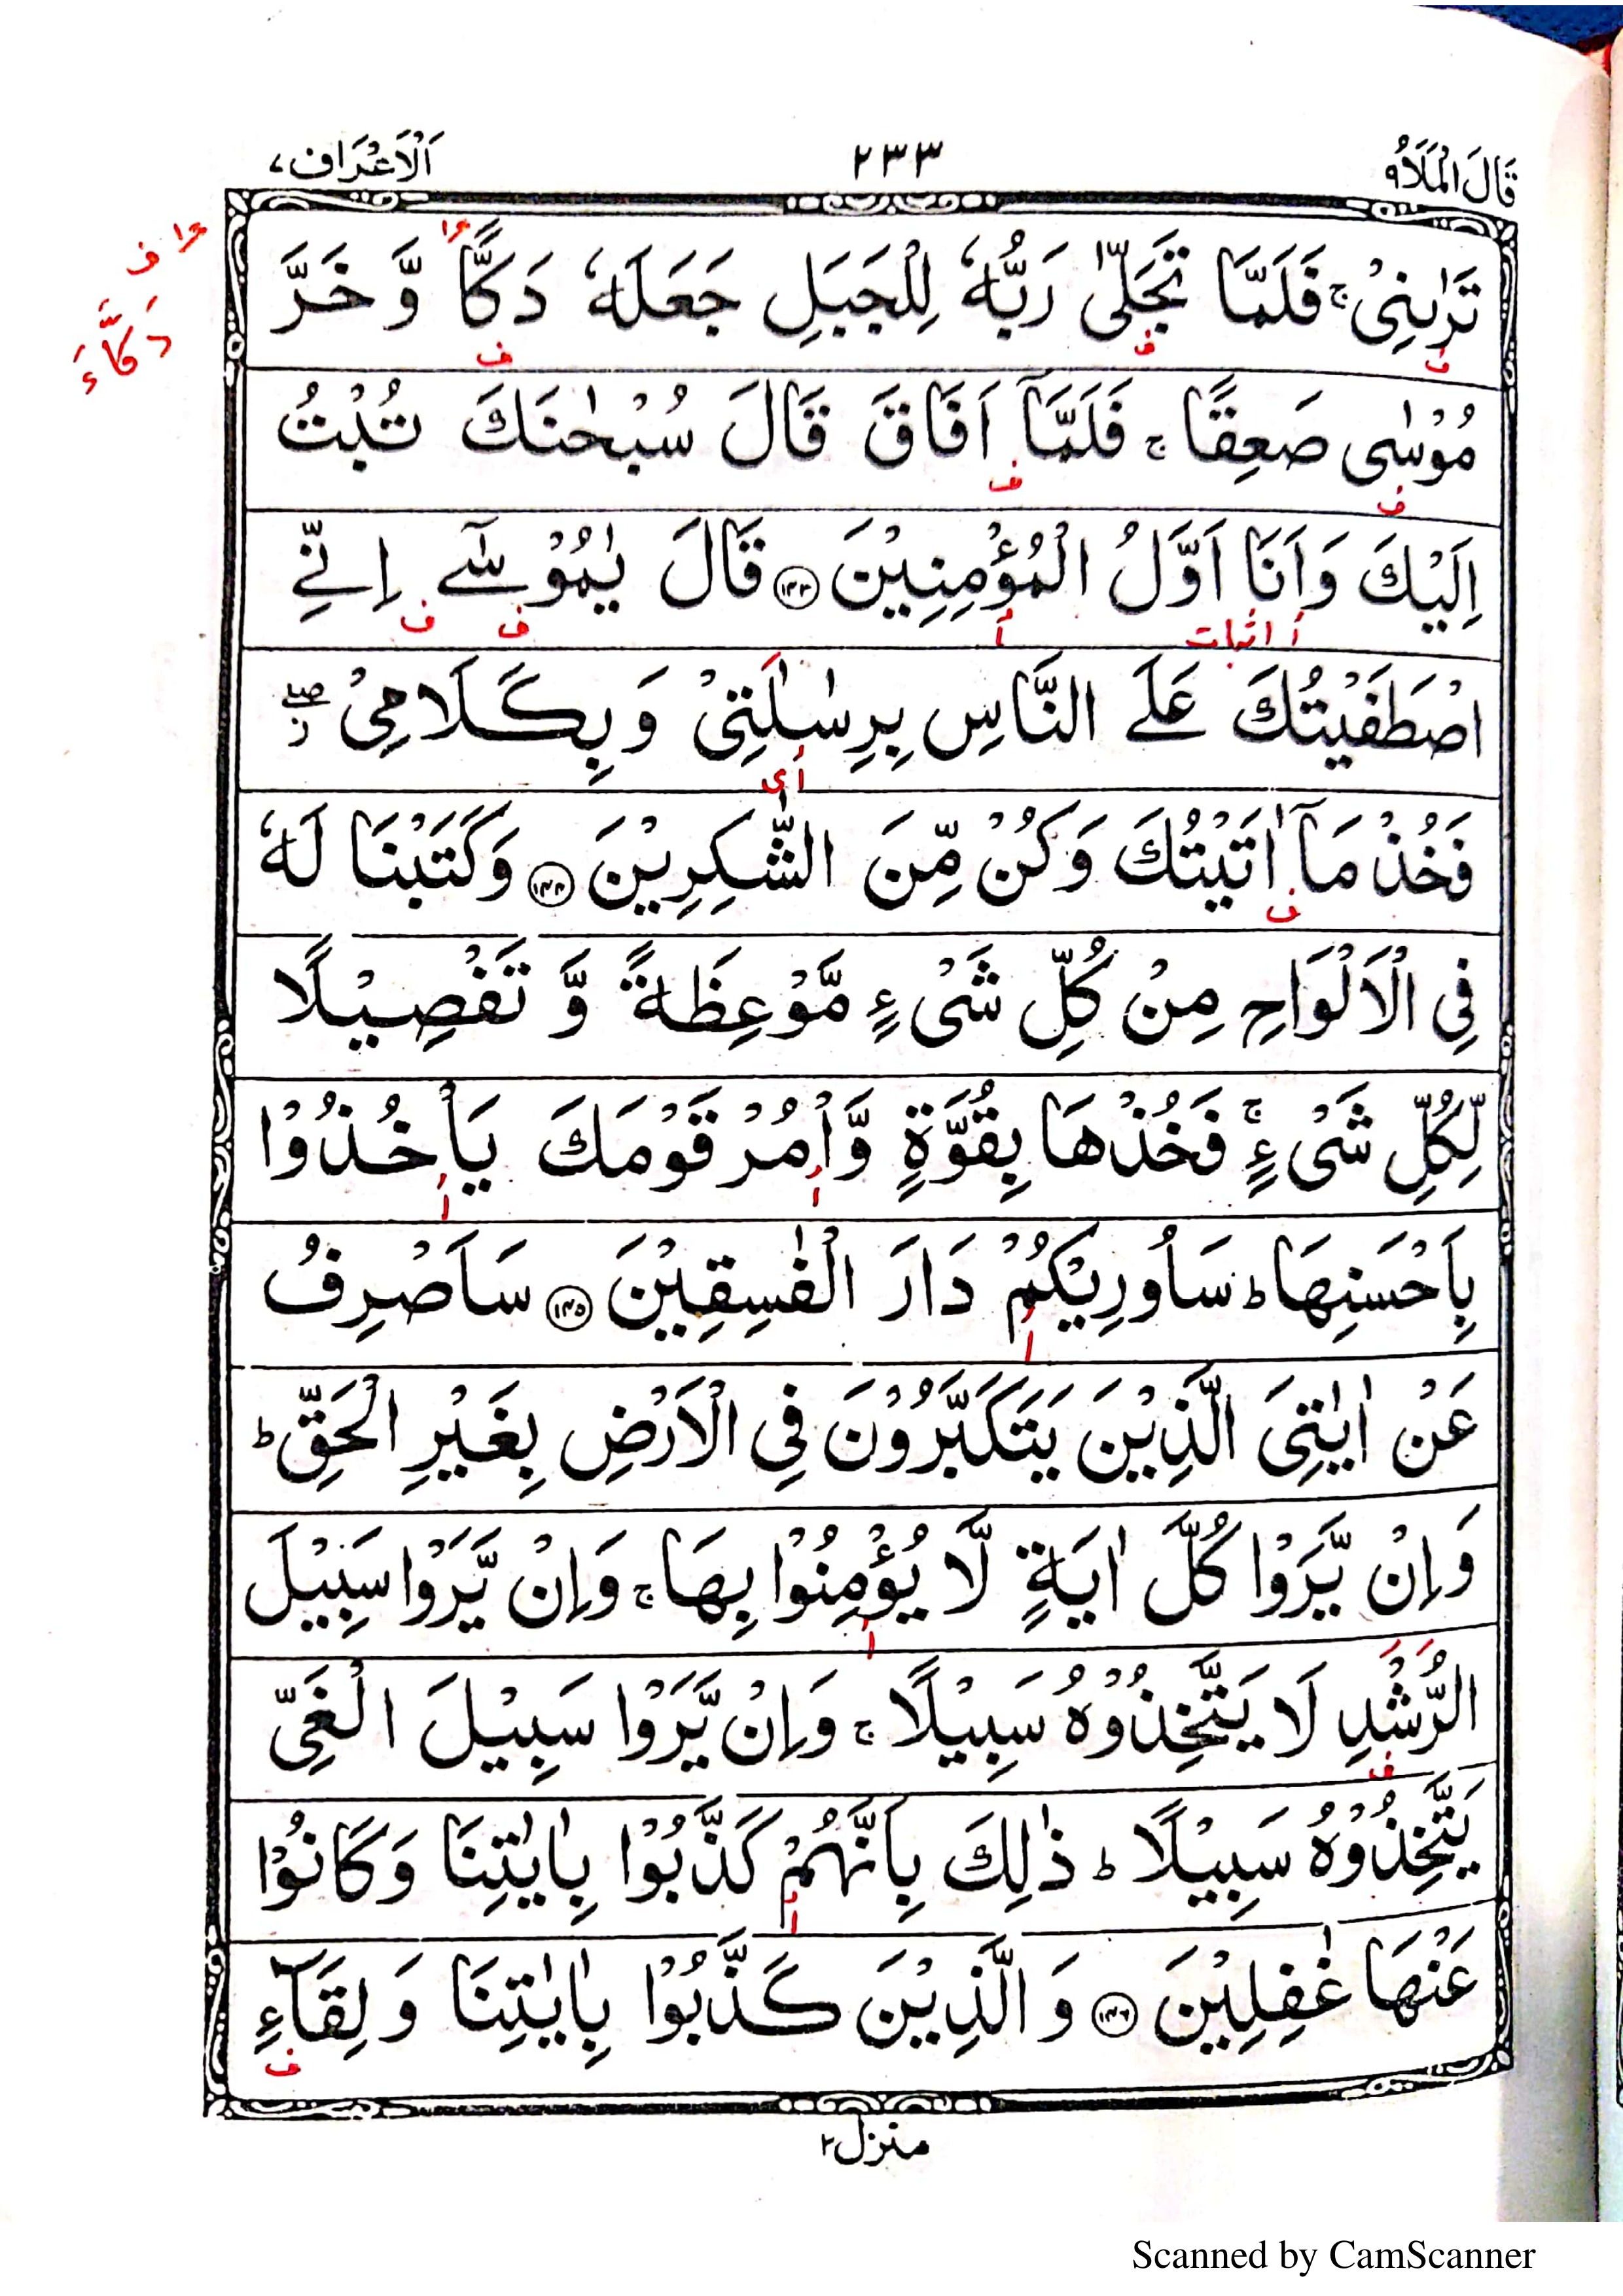 قَالَ الْمَلَاُ ٩
٢٣٣
اَلْاَعْرَاف ٧
تَرٰىنِیْ ۚ فَلَمَّا تَجَلّٰى رَبُّهٗ لِلْجَبَلِ جَعَلَهٗ دَكًّا وَّ خَرَّ
دَكَّآءَ
مُوْسٰى صَعِقًا ۚ فَلَمَّاۤ اَفَاقَ قَالَ سُبْحٰنَكَ تُبْتُ
اِلَیْكَ وَاَنَا اَوَّلُ الْمُؤْمِنِیْنَ ﴿۱۴۳﴾ قَالَ یٰمُوْسٰۤی اِنِّی
أ اثبات أ ف ف
اصْطَفَیْتُكَ عَلَی النَّاسِ بِرِسٰلٰتِیْ وَ بِكَلَامِیْ ۖ ز
فَخُذْ مَاۤ اٰتَیْتُكَ وَكُنْ مِّنَ الشّٰكِرِیْنَ ﴿۱۴۴﴾ وَكَتَبْنَا لَهٗ
فِی الْاَلْوَاحِ مِنْ كُلِّ شَیْءٍ مَّوْعِظَةً وَّ تَفْصِیْلًا
لِّكُلِّ شَیْءٍ ۚ فَخُذْهَا بِقُوَّةٍ وَّاْمُرْ قَوْمَكَ یَاْخُذُوْا
بِاَحْسَنِهَا ؕ سَاُورِیْكُمْ دَارَ الْفٰسِقِیْنَ ﴿۱۴۵﴾ سَاَصْرِفُ
عَنْ اٰیٰتِیَ الَّذِیْنَ یَتَكَبَّرُوْنَ فِی الْاَرْضِ بِغَیْرِ الْحَقِّ ؕ
وَاِنْ یَّرَوْا كُلَّ اٰیَةٍ لَّا یُؤْمِنُوْا بِهَا ۚ وَاِنْ یَّرَوْا سَبِیْلَ
الرُّشْدِ لَا یَتَّخِذُوْهُ سَبِیْلًا ۚ وَاِنْ یَّرَوْا سَبِیْلَ الْغَیِّ
یَتَّخِذُوْهُ سَبِیْلًا ؕ ذٰلِكَ بِاَنَّهُمْ كَذَّبُوْا بِاٰیٰتِنَا وَكَانُوْا
عَنْهَا غٰفِلِیْنَ ﴿۱۴۶﴾ وَ الَّذِیْنَ كَذَّبُوْا بِاٰیٰتِنَا وَ لِقَآءِ
منزل ٢
Scanned by CamScanner